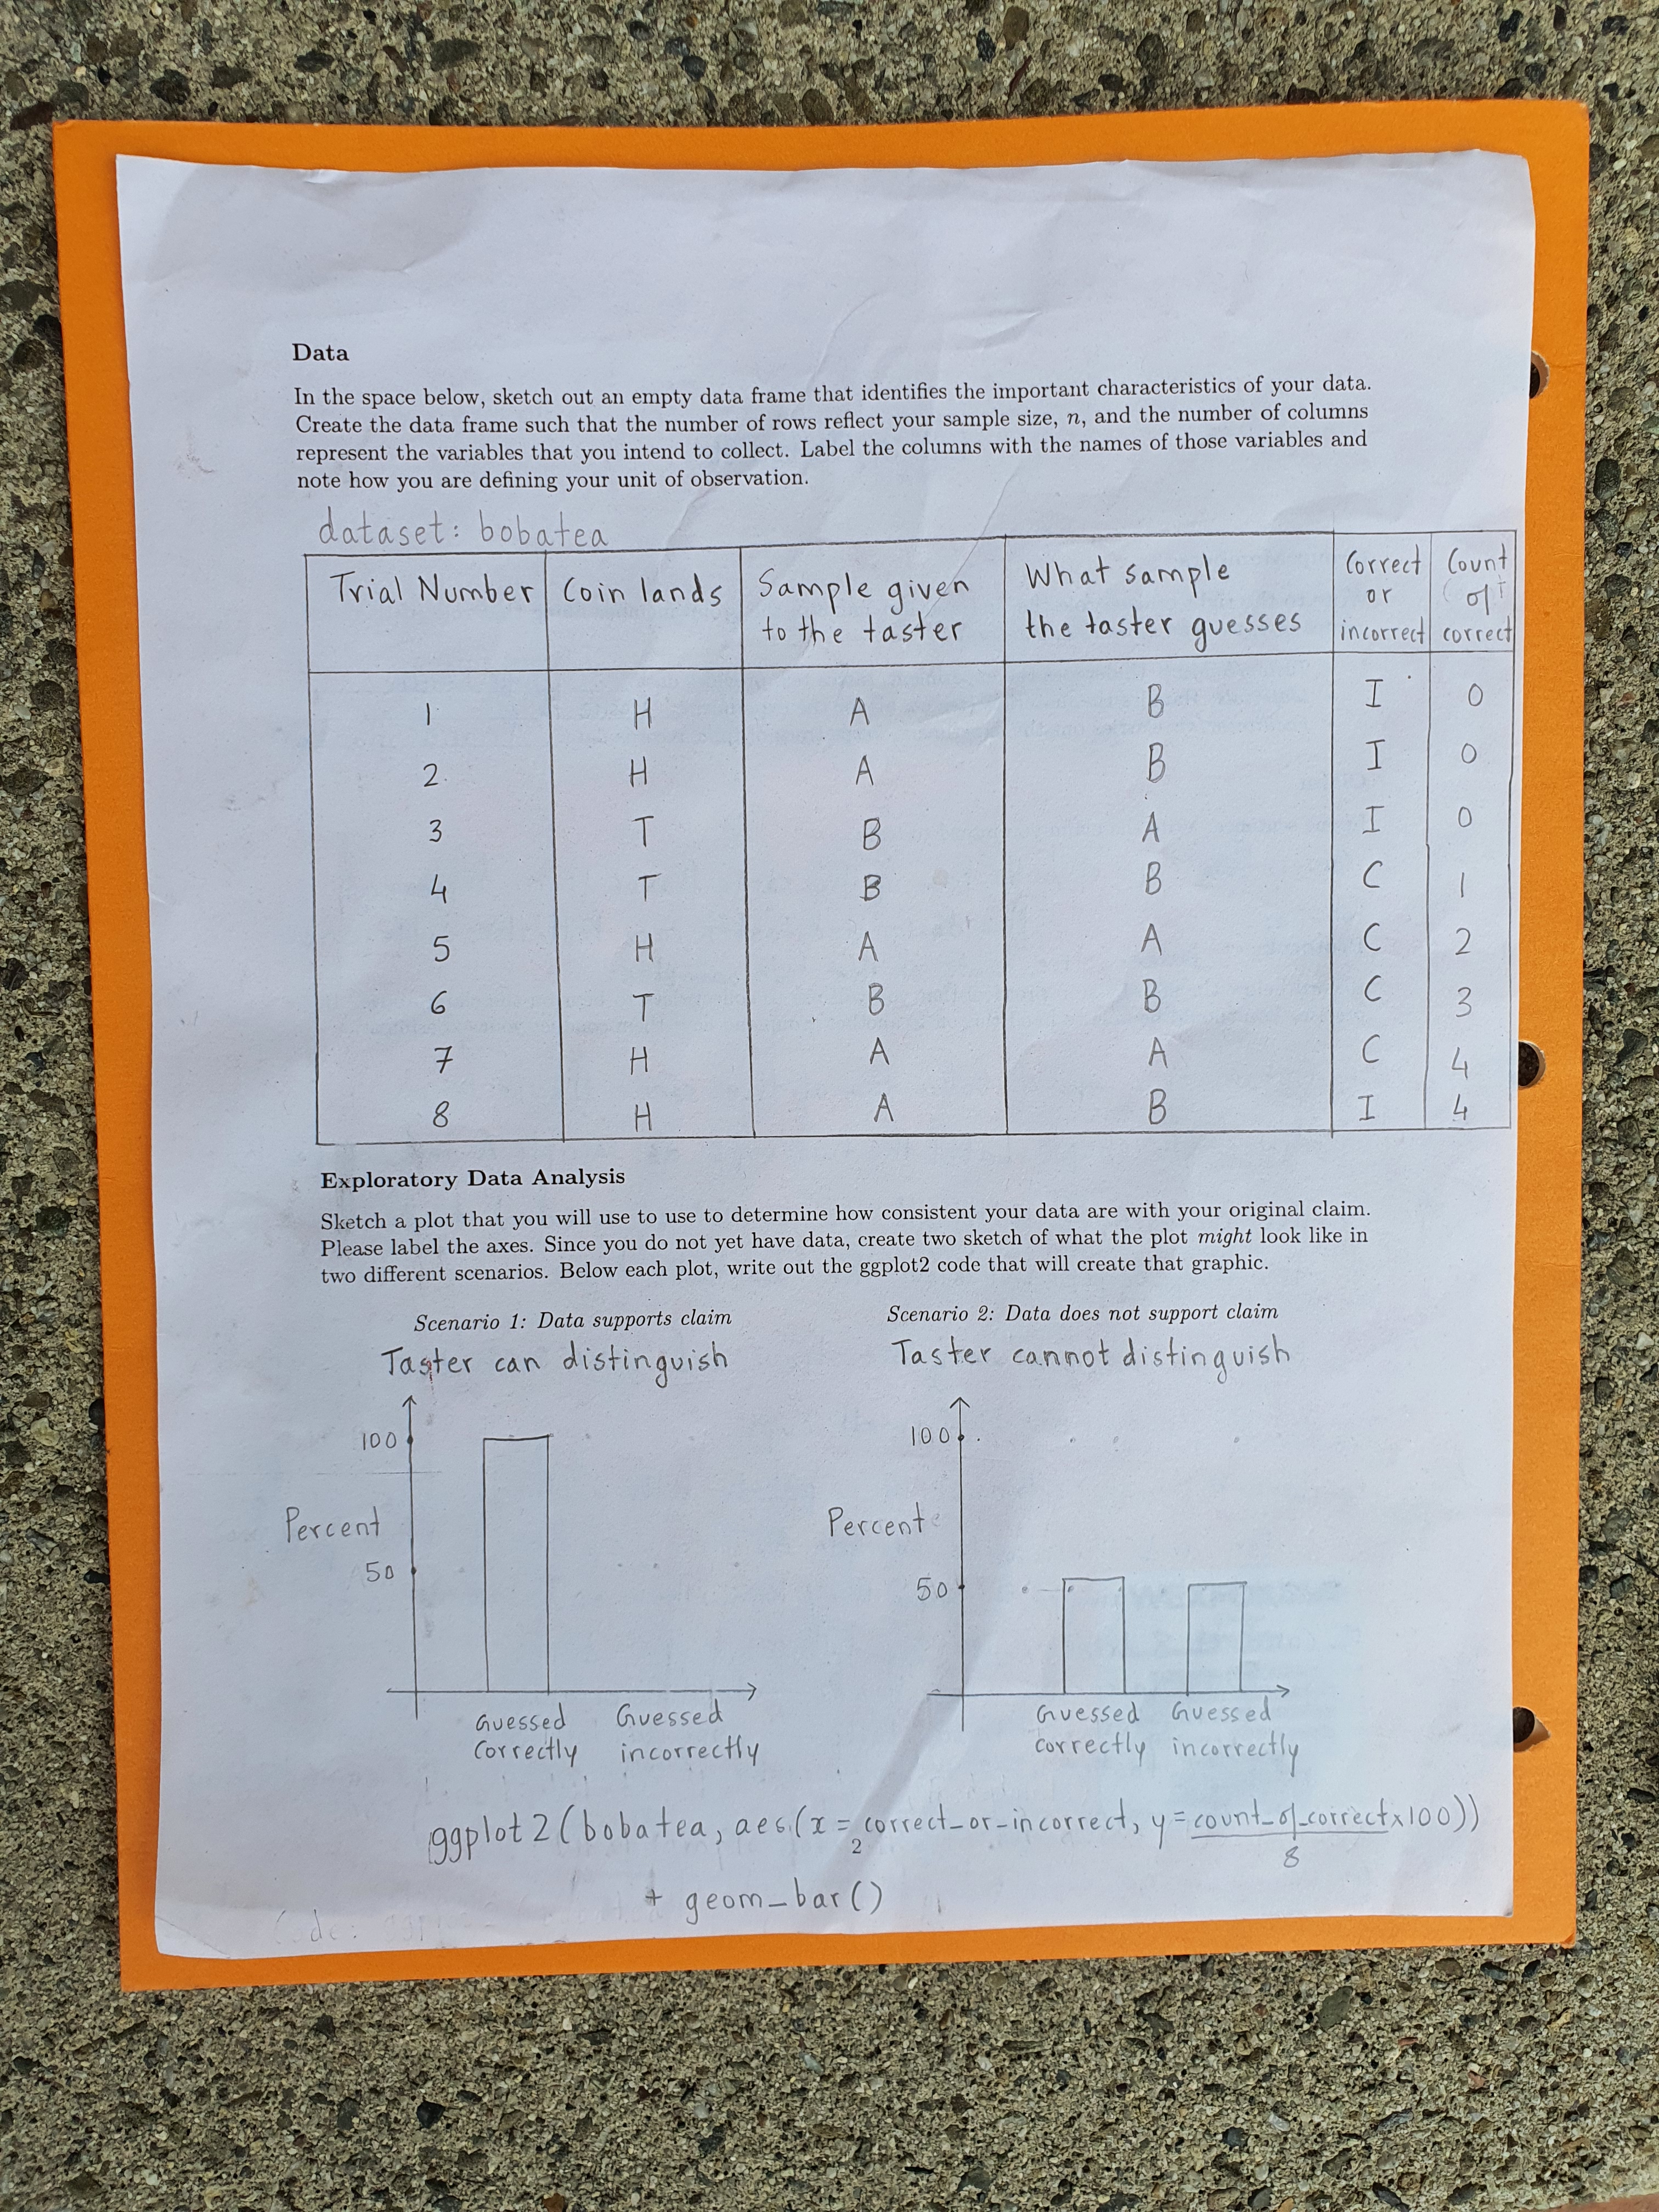 Data
In the space below, sketch out an empty data frame that identifies the important characteristics of your data.
Create the data frame such that the number of rows reflect your sample size, n, and the number of columns
represent the variables that you intend to collect. Label the columns with the names of those variables and
note how you are defining your unit of observation.
dataset: bobatea
Trial Number Coin lands Sample given to the taster What sample the taster guesses Correct or incorrect Count of correct
1 H A B I 0
2 H A B I 0
3 T B A I 0
4 T B B C 1
5 H A A C 2
6 T B B C 3
7 H A A C 4
8 H A B I 4
Exploratory Data Analysis
Sketch a plot that you will use to use to determine how consistent your data are with your original claim.
Please label the axes. Since you do not yet have data, create two sketch of what the plot might look like in
two different scenarios. Below each plot, write out the ggplot2 code that will create that graphic.
Scenario 1: Data supports claim
Taster can distinguish
100
Percent
50
Guessed Guessed
correctly incorrectly
Scenario 2: Data does not support claim
Taster cannot distinguish
100
Percent
50
Guessed Guessed
correctly incorrectly
ggplot2(bobatea, aes(x = correct_or_incorrect, y = count_of_correct x100))
2
8
+ geom_bar()